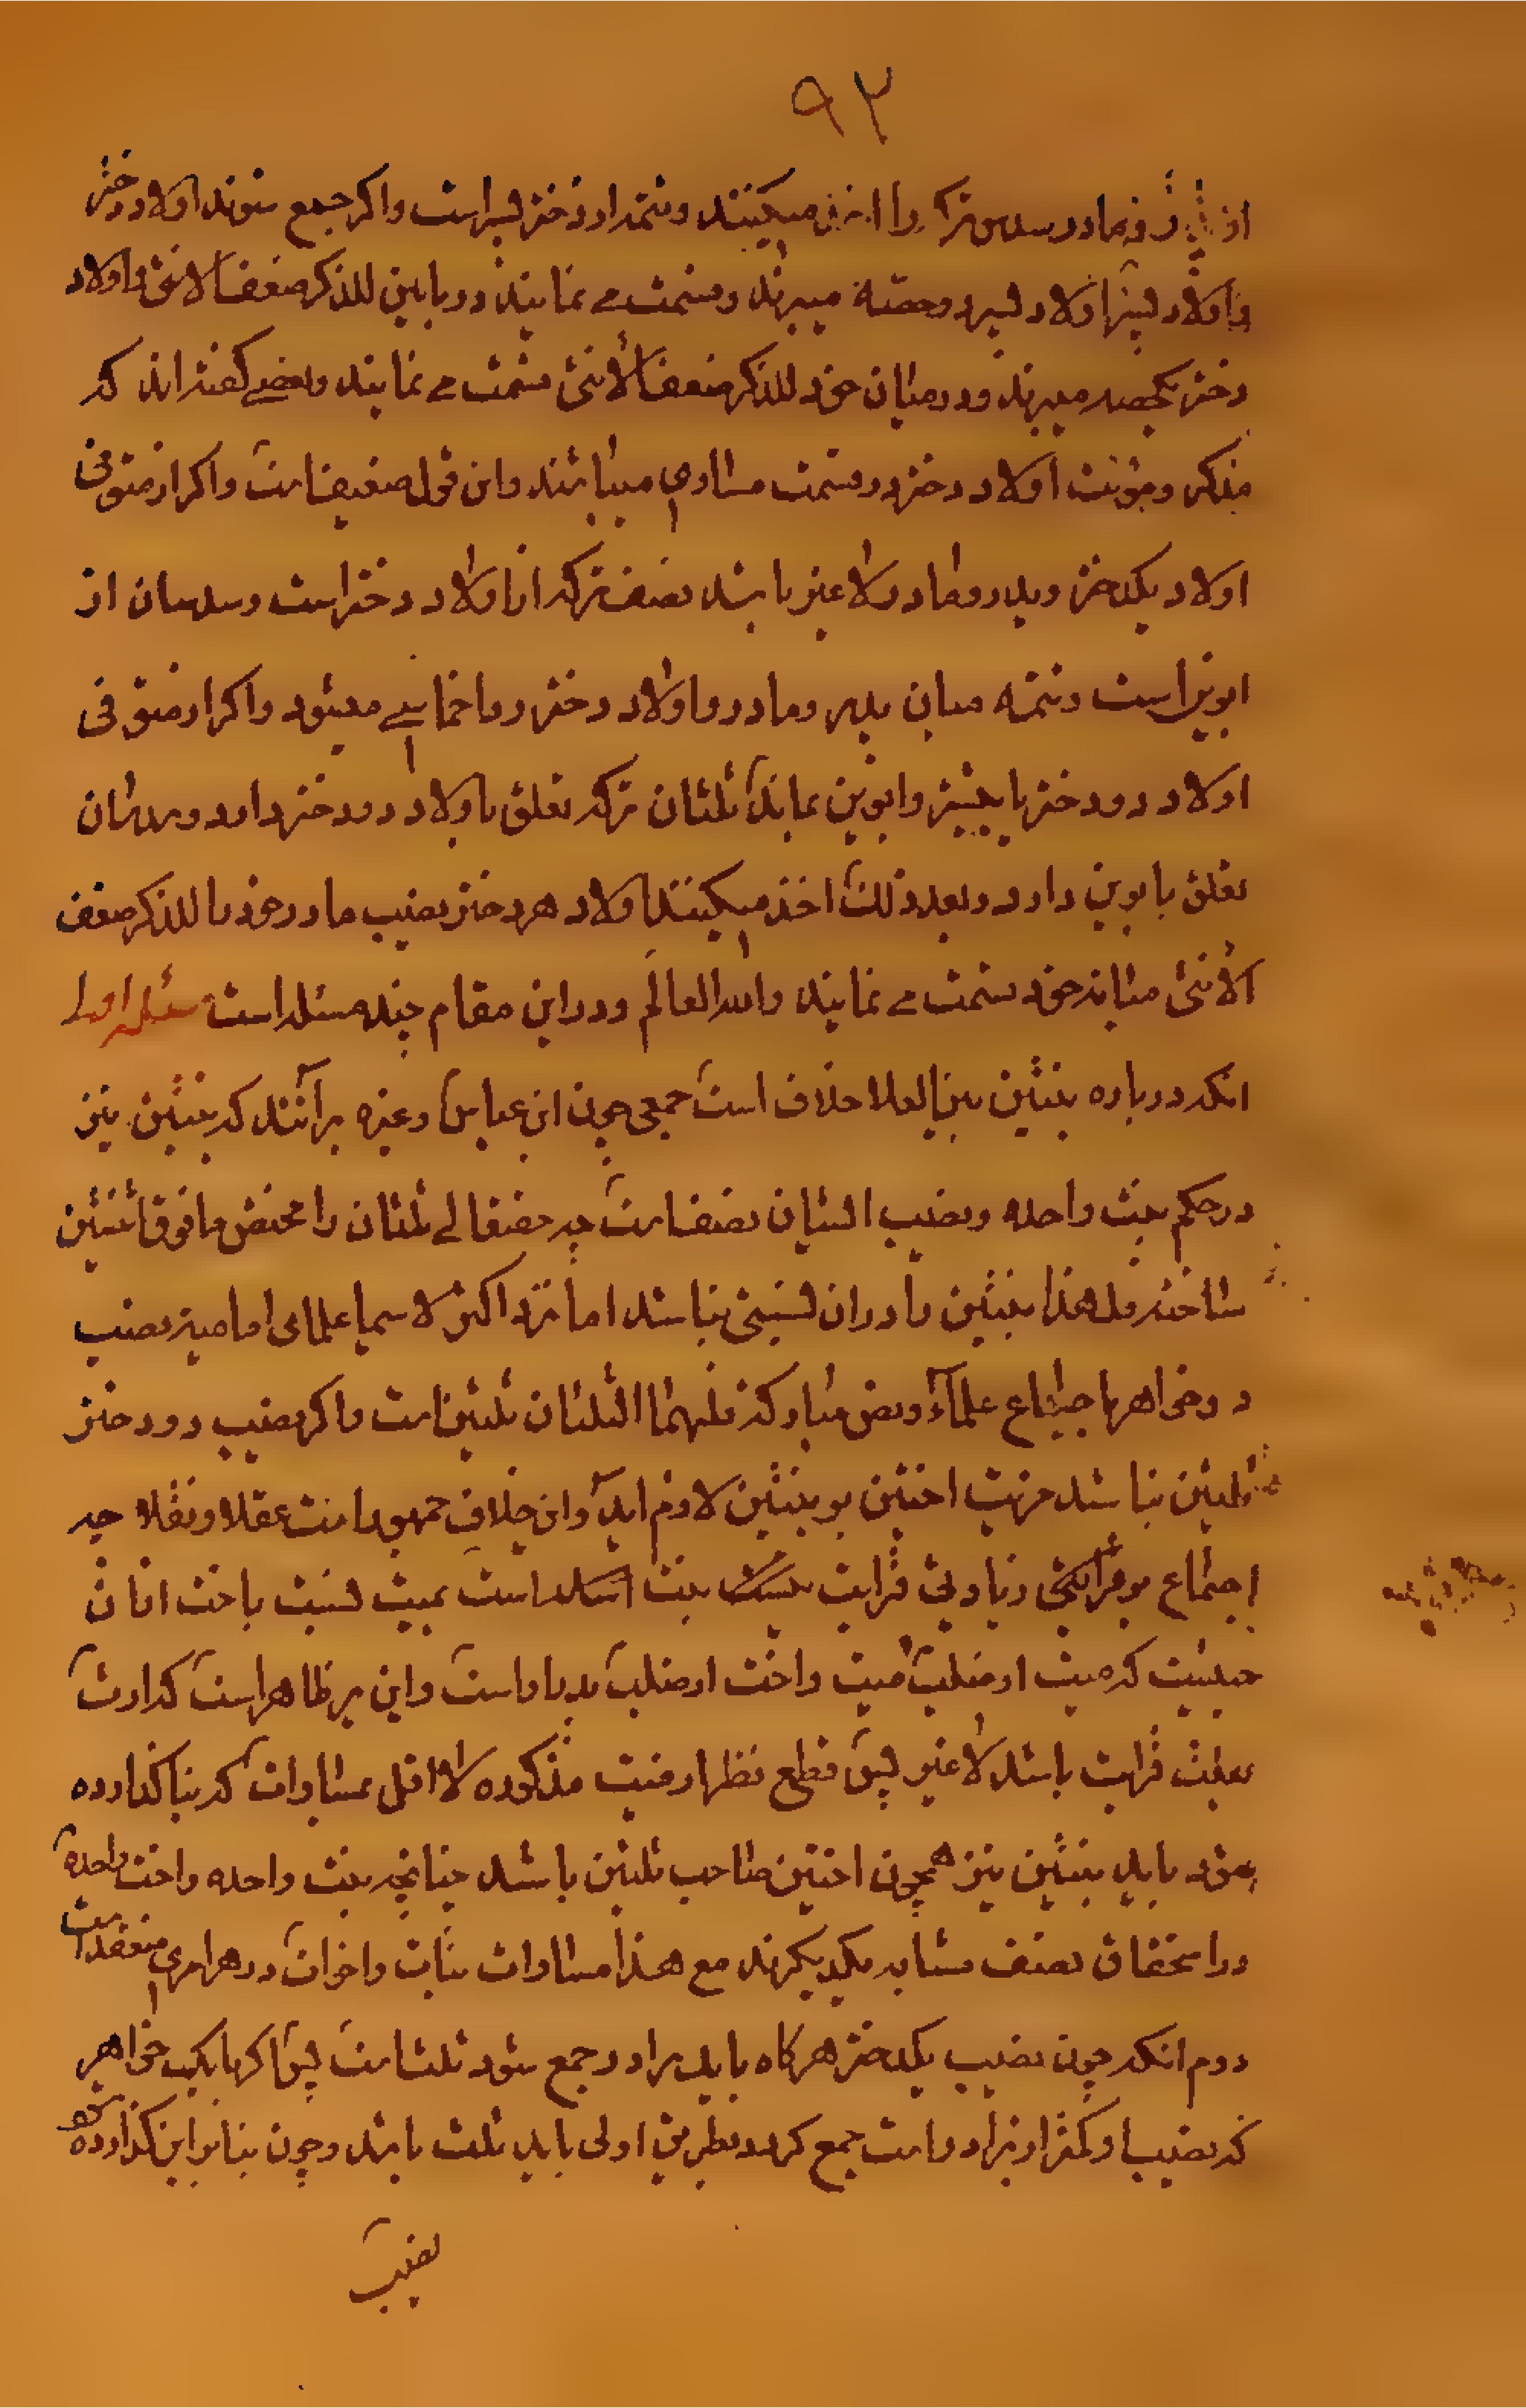 ۹۳
از پدر و مادر سدس ترکه را اخذ میکنند و تتمه از دختر پسر است و اگر جمع شوند اولاد دختر
و اولاد پسر اولاد پسر دو حصّه میبرند و قسمت مے نمایند در مابین للذکر ضعف الانثی و اولاد
دختر یکحصه میبرند و در میان خود للذکر ضعف الأنثی قسمت مے نمایند و بعضے گفته اند که
مذکر و مؤنث اولاد دختر در قسمت مساوی میباشند و این قول ضعیف است و اگر از متوفی
اولاد یکدختر و پدر و مادر لاغیر باشد نصف ترکه از اولاد دختر است و سدسان از
ابوین است و تتمه میان پدر و مادر و اولاد دختر رد اخماسے میشود و اگر از متوفی
اولاد دو دختر یا بیشتر و ابوین بماند ثلثان ترکه تعلق باولاد دو دختر دارد و سدسان
تعلق بابوین دارد و بعد ذلک اخذ میکنند اولاد هر دختر نصیب مادر خود را للذکر ضعف
الأنثی میانه خود قسمت مے نمایند والله العالم و در این مقام چند مسئله است مسئله اولی
انکه در باره بنتین بین العلما خلاف است جمعی چون ابن عباس و غیره برآنند که بنتین نیز
در حکم بنت واحده و نصیب ایشان نصف است چه حقتعالے ثلثان را مختص مافوق اثنتین
ساخته فلهذا بنتین را در ان نسبتی نباشد اما نزد اکثر لا سیما علمای امامیه نصیب
دو خواهر باجماع علمآء و نص مبارکه فلهما الثلثان ثلثین است و اگر نصیب دو دختر
ثلثین نباشد مزیت اختین بر بنتین لازم اید و این خلاف جمهور است عقلا و نقلا چه
اجتماع بر قرابتی زیادتی قرابت بنت است بمیت نسبت باخت ازان
حیثیت که میت از صلب میت و اخت از صلب پدر او است و این پر ظاهر است که ارث
بعلت قرابت باشد لاغیر پس قطع نظر از مزیت مذکوره لااقل بمساوات که بنا گذارده
شود باید بنتین نیز همچون اختین صاحب ثلثین باشد چنانچه بنت واحده و اخت واحده
در استحقاق نصف مشابه یکدیگرند مع هذا مساوات بنات و اخوات در هر امری منعقد است
دوم انکه چون نصیب یکدختر هرگاه با یک برادر جمع شود ثلث است پس اگر با یک خواهر
که نصیب او کمتر از برادر است جمع گردد بطریق اولی باید ثلث باشد و چون بنا بر این گذارده شود
نصیب